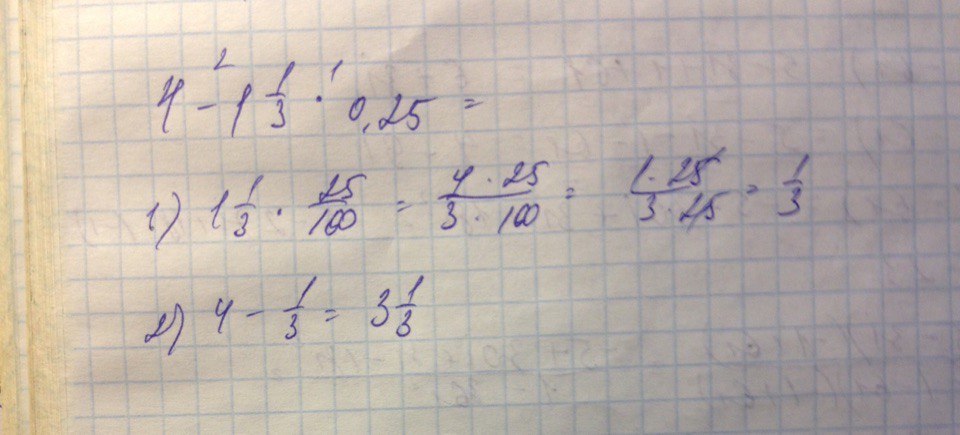 4 - 1 1/3 · 0,25 =
1) 1 1/3 · 25/100 = 4 · 25/3 · 100 = 1 · 25/3 · 25 = 1/3
2) 4 - 1/3 = 3 1/3